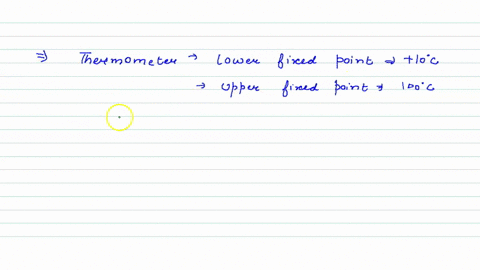 ⇒ Thermometer → lower fixed point ⇒ +10°C
→ Upper fixed point ⇒ 100°C